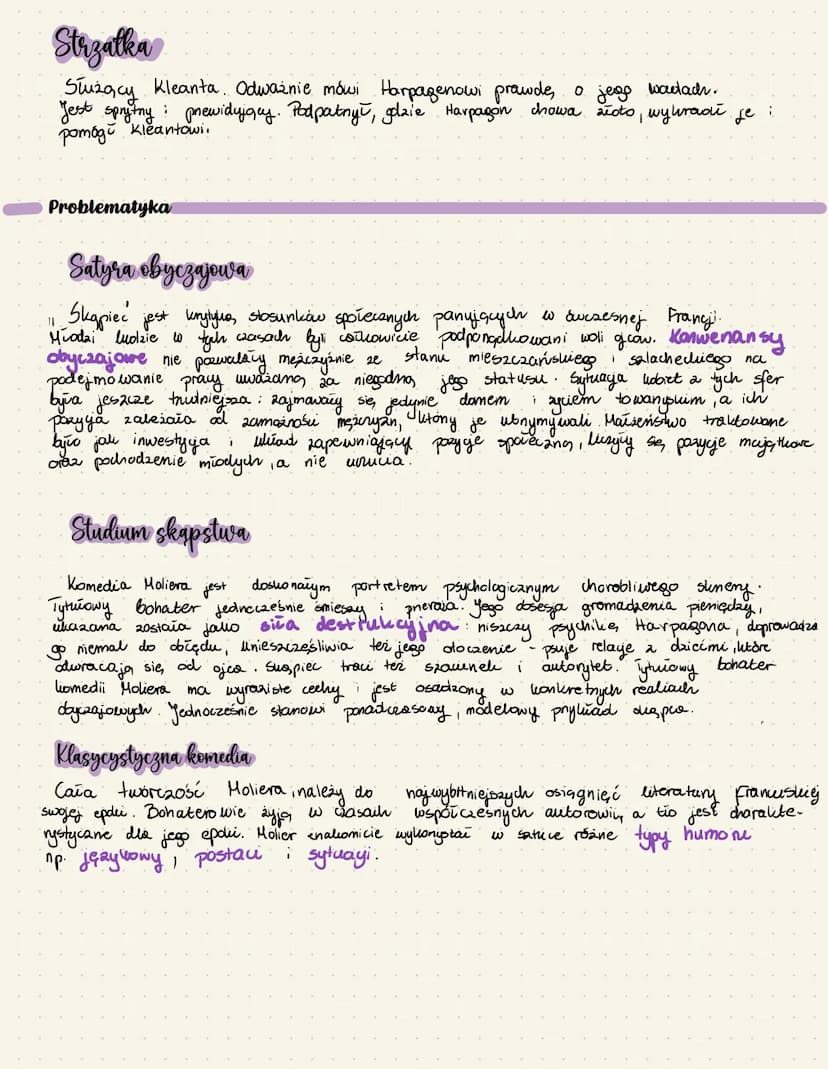 Strzałka
Służący Kleanta. Odważnie mówi Harpagenowi prawdę, o jego wadach.
Jest sprytny i przewidujący. Podpatrzył, gdzie Harpagon chowa złoto, wykradł je i
pomógł Kleantowi.
Problematyka
Satyra obyczajowa
"Skąpiec" jest krytyką stosunków społecznych panujących w ówczesnej Francji.
Młodzi ludzie w tych czasach byli całkowicie podporządkowani woli ojców. Konwenansy
obyczajowe nie pozwalały mężczyźnie ze stanu mieszczańskiego i szlacheckiego na
podejmowanie pracy uważaną za niegodną jego statusu. Sytuacja kobiet z tych sfer
była jeszcze trudniejsza: zajmowały się jedynie domem i życiem towarzyskim, a ich
pozycja zależała od zamożności mężczyzn, którzy je utrzymywali. Małżeństwo traktowane
było jak inwestycja i układ zapewniający pozycję społeczną, liczyły się pozycje majątkowe
oraz pochodzenie młodych, a nie uczucia.
Studium skąpstwa
Komedia Moliera jest doskonałym portretem psychologicznym chorobliwego sknery.
Tytułowy bohater jednocześnie śmieszy i przeraża. Jego obsesja gromadzenia pieniędzy,
ukazana została jako siła destrukcyjna: niszczy psychikę Harpagona, doprowadza
go niemal do obłędu, unieszczęśliwia też jego otoczenie - psuje relacje z dziećmi, które
odwracają się od ojca. Skąpiec traci też szacunek i autorytet. Tytułowy bohater
komedii Moliera ma wyraziste cechy i jest osadzony w konkretnych realiach
obyczajowych. Jednocześnie stanowi ponadczasowy, modelowy przykład skąpca.
Klasycystyczna komedia
Cała twórczość Moliera należy do najwybitniejszych osiągnięć literatury francuskiej
swojej epoki. Bohaterowie żyją w czasach współczesnych autorowi, a tio jest charakte-
rystyczne dla jego epoki. Molier znakomicie wykorzystał w sztuce różne typy humoru
np. językowy, postaci i sytuacji.